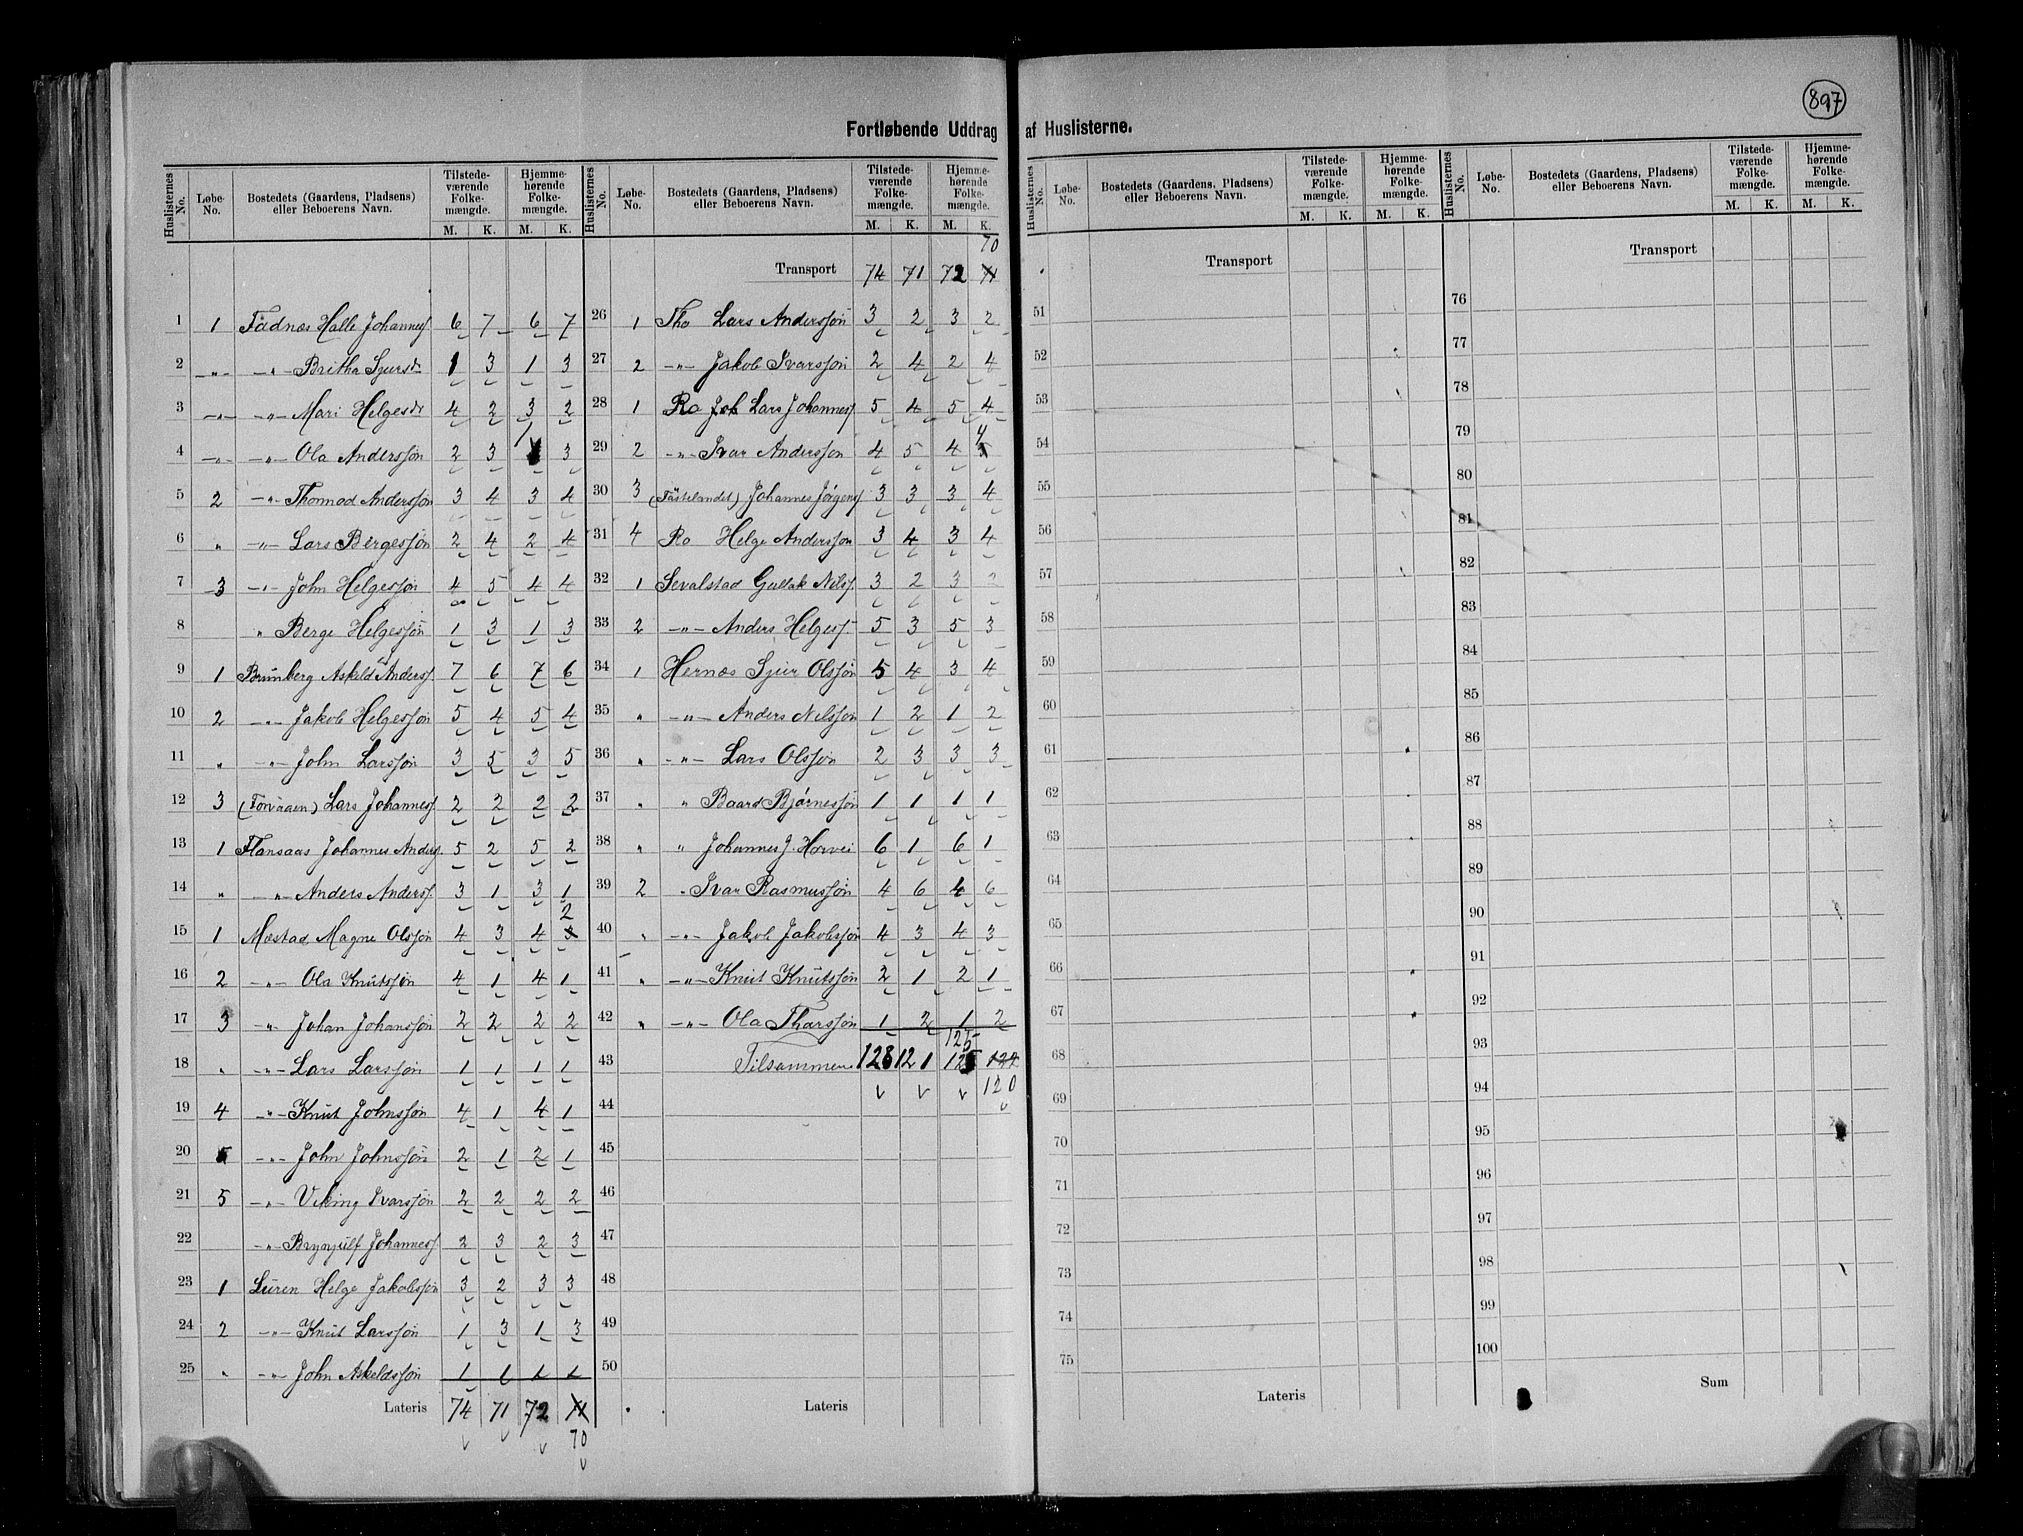 897
Fortløbende Uddrag af Huslisterne.
Huslisternes No. Løbe-No. Bostedets (Gaardens, Pladsens) eller Beboerens Navn. Tilstedeværende Folkemængde. M. K. Hjemmehørende Folkemængde. M. K.
1 1 Fadnæs Halle Johannesf. 6 7 6 7
2 -"- -"- Britha Sjursdr 1 3 1 3
3 -"- -"- Mari Helgesdr 4 2 3 2
4 -"- -"- Ola Anderssøn 2 3 1 3
5 2 -"- Thormod Anderssøn 3 4 3 4
6 " -"- Lars Bergessøn 2 4 2 4
7 3 -"- John Helgessøn 4 5 4 4
8 " Berge Helgessøn 1 3 1 3
9 1 Brunberg Askeld Andersf. 7 6 7 6
10 2 -"- Jakob Helgessøn 5 4 5 4
11 " -"- John Larssøn 3 5 3 5
12 3 (Torvaaen) Lars Johannesf. 2 2 2 2
13 1 Flansaas Johannes Andersf. 5 2 5 2
14 " -"- Anders Andersf. 3 1 3 1
15 1 Mæstad Magne Olssøn 4 3 4 3 2
16 2 -"- Ola Knutssøn 4 1 4 1
17 3 -"- Johan Johanssøn 2 2 2 2
18 " -"- Lars Larssøn 1 1 1 1
19 4 -"- Knut Johnssøn 4 1 4 1
20 5 -"- John Johnssøn 2 1 2 1
21 5 -"- Viking Ivarssøn 2 2 2 2
22 -"- Brynjulf Johannesf. 2 3 2 3
23 1 Luren Helge Jakobssøn 3 2 3 3
24 2 -"- Knut Larssøn 1 3 1 3
25 " -"- John Askeldssøn 1 1 1 1
Lateris 74 71 72 71
70
Huslisternes No. Løbe-No. Bostedets (Gaardens, Pladsens) eller Beboerens Navn. Tilstedeværende Folkemængde. M. K. Hjemmehørende Folkemængde. M. K.
70
Transport 74 71 72 71
26 1 Tho Lars Anderssøn 3 2 3 2
27 2 -"- Jakob Ivarssøn 2 4 2 4
28 1 Ro Lars Johannesf. 5 4 5 4
29 2 -"- Ivar Anderssøn 4 5 4 5 4
30 3 (Fastelandet) Johannes Jørgensf. 3 3 3 4
31 4 Ro Helge Anderssøn 3 4 3 4
32 1 Sevalstad Gullak Nilsf. 3 2 3 2
33 2 -"- Anders Helgesf. 5 3 5 3
34 1 Hernæs Sjur Olssøn 5 4 3 4
35 " -"- Anders Nilssøn 1 2 1 2
36 " -"- Lars Olssøn 2 3 3 3
37 " " Baard Bjørnessøn 1 1 1 1
38 " " Johannes J. Horvei 6 1 6 1
39 2 " Ivar Rasmussøn 4 6 4 6
40 " -"- Jakob Jakobssøn 4 3 4 3
41 " -"- Knut Knutssøn 2 1 2 1
42 " -"- Ola Tharssøn 1 2 1 2
125
43 Tilsammen 128 121 125 122
120
44
45
46
47
48
49
50
Lateris
Huslisternes No. Løbe-No. Bostedets (Gaardens, Pladsens) eller Beboerens Navn. Tilstedeværende Folkemængde. M. K. Hjemmehørende Folkemængde. M. K.
Transport
51
52
53
54
55
56
57
58
59
60
61
62
63
64
65
66
67
68
69
70
71
72
73
74
75
Lateris
Huslisternes No. Løbe-No. Bostedets (Gaardens, Pladsens) eller Beboerens Navn. Tilstedeværende Folkemængde. M. K. Hjemmehørende Folkemængde. M. K.
Transport
76
77
78
79
80
81
82
83
84
85
86
87
88
89
90
91
92
93
94
95
96
97
98
99
100
Sum